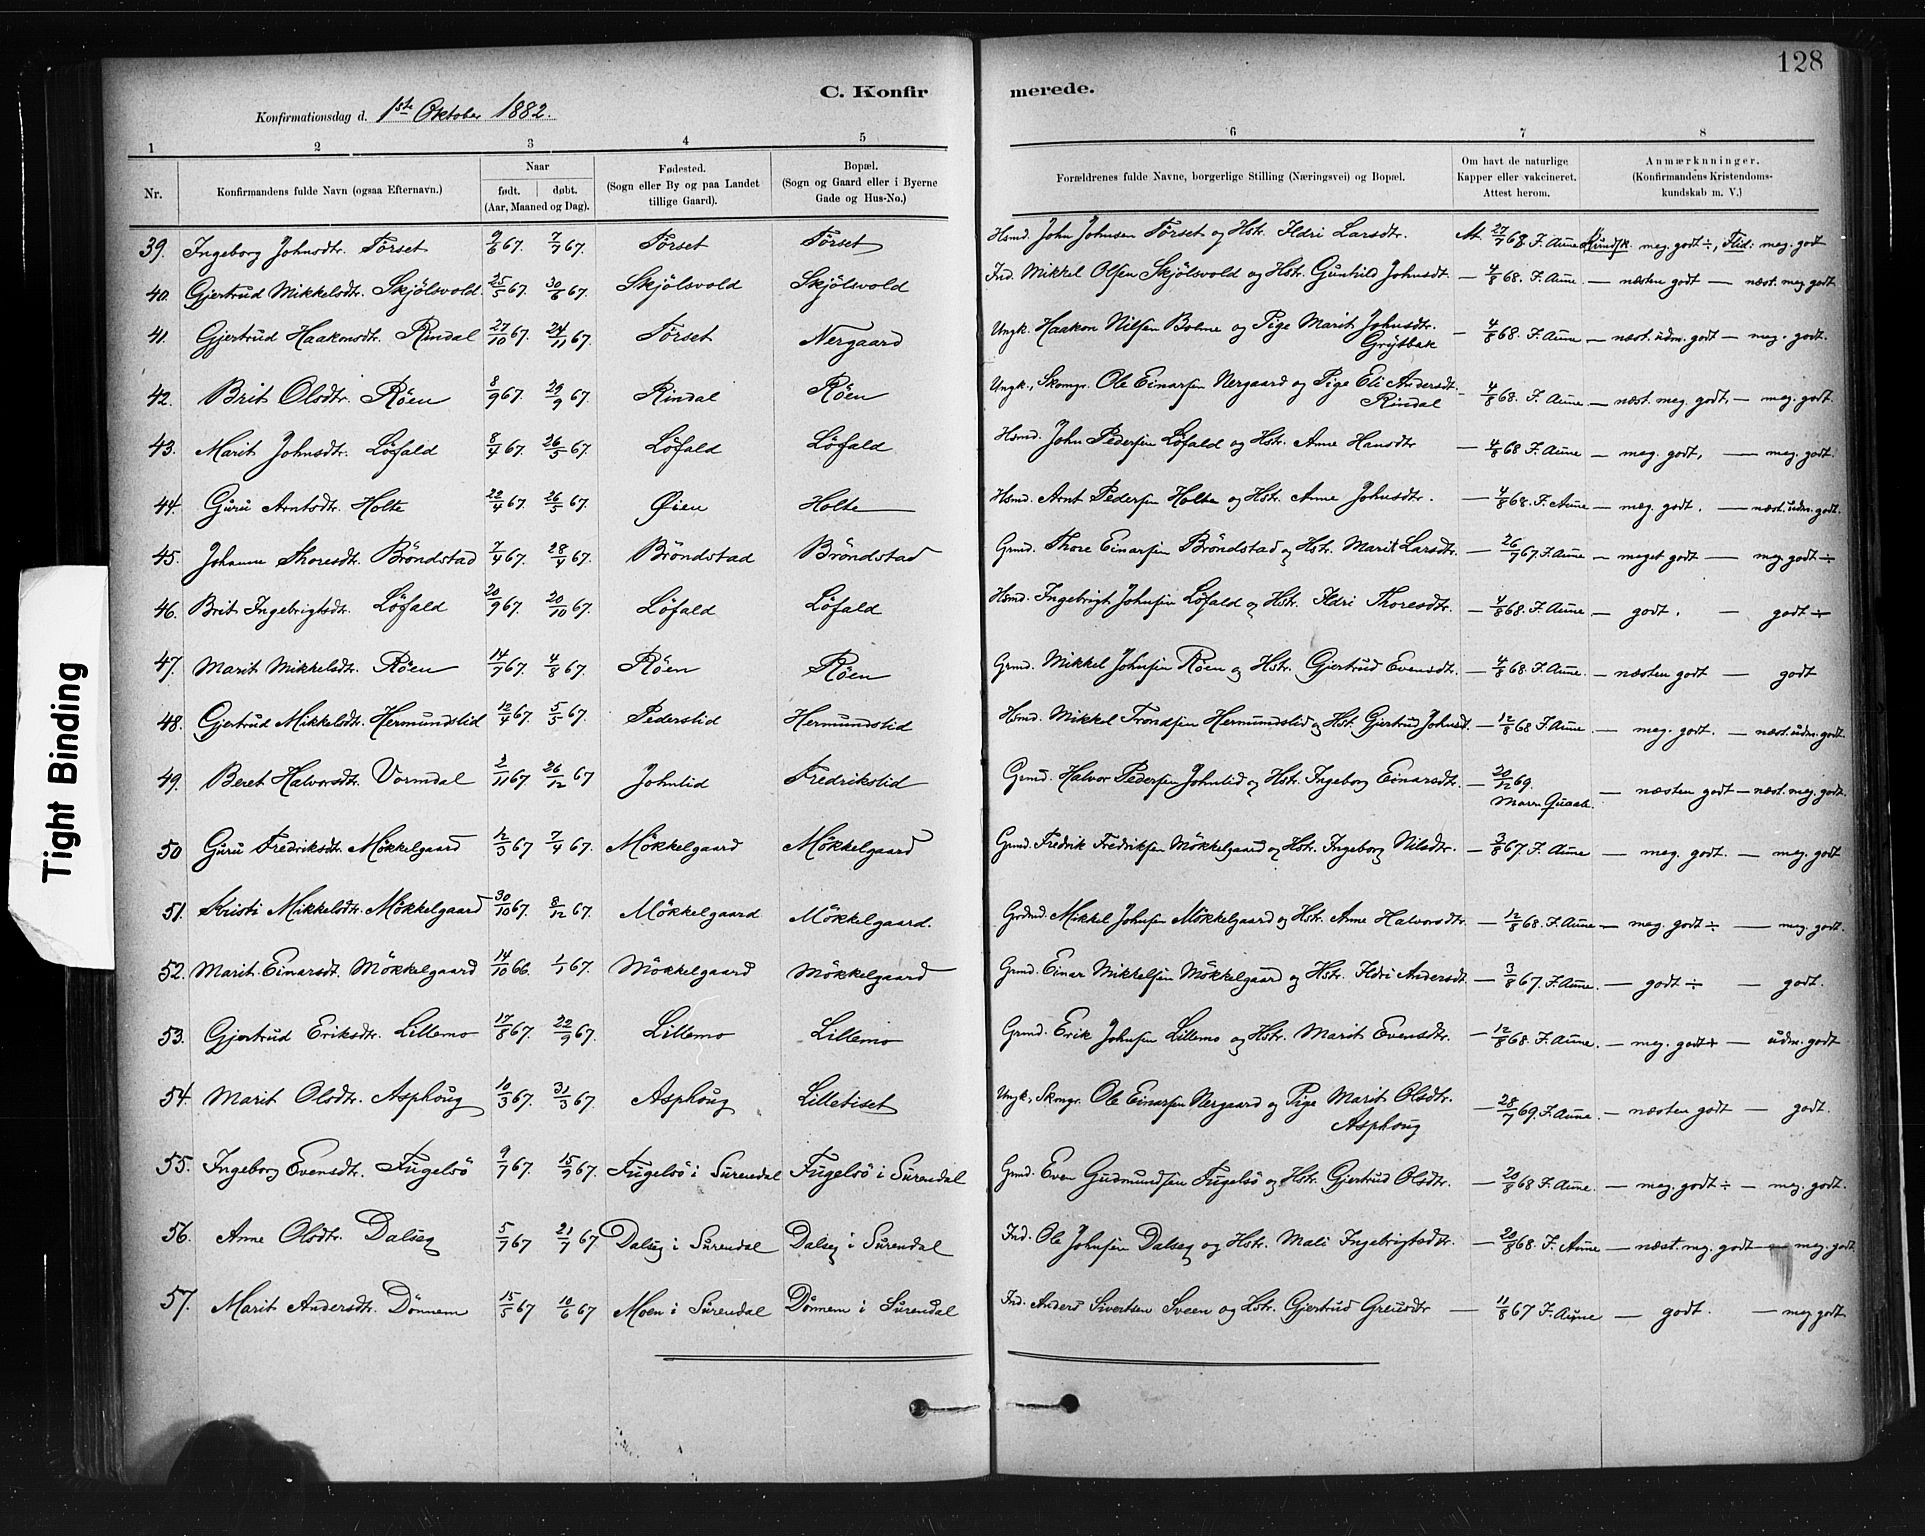 128
C. Konfir merede.
Konfirmationsdag d. 1ste Oktober 1882.
1 2 3 4 5 6 7 8
Nr. Konfirmandens fulde Navn (ogsaa Efternavn.) Naar født. døbt. (Aar, Maaned og Dag). Fødested. (Sogn eller By og paa Landet tillige Gaard). Bopæl. (Sogn og Gaard eller i Byerne Gade og Hus-No.) Forældrenes fulde Navne, borgerlige Stilling (Næringsvei) og Bopæl. Om havt de naturlige Kapper eller vakcineret. Attest herom. Anmærknninger. (Konfirmandens Kristendoms-kundskab m. V.)
39. Ingeborg Johnsdtr. Törset 9/6 67. 7/7 67. Törset Törset Hsmd. John Johnsen Törset og Hstr. Ildri Larsdtr. At. 27/7 68 F. Aune Kundsk. meg. godt ÷, Flid: meg. godt
40. Gjertrud Mikkelsdtr. Skjölsvold 25/5 67. 30/6 67. Skjölsvold Skjölsvold Ind. Mikkel Olsen Skjölsvold og Hstr. Gunhild Johnsdt. — 4/8 68. F. Aune. — næsten godt — næst. meg. godt
41. Gjertrud Haakonsdtr. Rindal 27/10 67. 24/11 67. Törset Nergaard Ungk. Haakon Nilsen Bolme og Pige Marit Johnsdtr. Grytbak — 4/8 68. F. Aune — næst. udm. godt — meg. godt.
42. Brit Olsdtr. Röen 8/9 67. 29/9 67. Rindal Röen Ungk., Skomgr. Ole Einarsen Nergaard og Pige Eli Andersdt. Rindal — 4/8 68. F. Aune — næst. meg. godt, — meg. godt.
43. Marit Johnsdtr. Löfald 8/4 67. 26/5 67. Löfald Löfald Hsmd. John Pedersen Löfald og Hstr. Anne Hansdtr — 4/8 68 F. Aune — meg. godt, — meg. godt.
44. Guru Arntsdtr. Holte 22/4 67. 26/5 67. Øien Holte Hsmd. Arnt Pedersen Holte og Hstr. Anne Johnsdtr. — 4/8 68. F. Aune — meg. godt. — næst. udm. godt.
45. Johanne Thoresdtr. Bröndstad 7/4 67. 28/4 67. Bröndstad Bröndstad Grmd. Thore Einarsen Bröndstad og Hstr. Marit Larsdtr. — 26/7 67. F. Aune — meget godt — meg. godt ÷
46. Brit Ingebrigtsdtr. Löfald 20/9 67. 20/10 67. Löfald Löfald Hsmd. Ingebrigt Johnsen Löfald og Hstr. Ildri Thoresdtr. — 4/8 68. F. Aune — godt. — godt ÷
47. Marit Mikkelsdtr. Röen 14/7 67. 4/8 67. Röen Röen Grmd. Mikkel Johnsen Röen og Hstr. Gjertrud Evensdtr. — 4/8 68. F. Aune. — næsten godt — godt
48. Gjertrud Mikkelsdtr. Hermundslid 12/4 67. 5/5 67. Pederslid Hermundslid Hsmd. Mikkel Trondsen Hermundslid og Hst. Gjertrud Johnsdt. — 12/8 68 F. Aune. — meg. godt. — næst. udm. godt.
49. Beret Halvorsdtr. Vormdal 2/11 67. 26/12 67 Johnlid Fredrikslid Grmd. Halvor Pedersen Johnlid og Hstr. Ingeborg Einarsdtr. — 20/12 69. — næsten godt — næst. meg. godt.
50 Guru Fredriksdtr. Mökkelgaard 12/3 67 7/4 67 Mökkelgaard Mökkelgaard Grmd. Fredrik Fredriksen Mökkelgaard og Hstr. Ingeborg Nilsdtr. — 3/8 67. F. Aune — meg. godt. — meg. godt
51. Kristi Mikkelsdtr. Mökkelgaard 30/10 67. 8/12 67. Mökkelgaard Mökkelgaard. Grdmd. Mikkel Johnsen Mökkelgaard og Hstr. Anne Halvorsdtr. — 12/8 68. F. Aune — meg. godt ÷ — meg. godt.
52. Marit Einarsdt. Mökkelgaard 14/10 66. 1/1 67. Mökkelgaard Mökkelgaard Grmd. Einar Mikkelsen Mökkelgaard og Hstr. Ildri Andersdt. — 3/8 67. F. Aune. — godt ÷ — godt.
53. Gjertrud Eriksdtr. Lillemo 17/8 67. 22/9 67. Lillemo Lillemo Grmd. Erik Johnsen Lillemo og Hstr. Marit Evensdtr. — 12/8 68. F. Aune. — meg. godt + — udm. godt
54. Marit Olsdtr. Asphoug 10/3 67. 31/3 67. Asphoug Lilletiset Ungk., Skomgr. Ole Einarsen Nergaard og Pige Marit Olsdtr. Asphoug — 28/7 69. F. Aune — næsten godt — godt.
55. Ingeborg Evensdtr. Fugelsö 9/7 67. 15/9 67. Fugelsö i Surendal Fugelsö i Surendal Grmd. Even Gudmundsen Fugelsö og Hstr. Gjertrud Olsdtr. — 20/8 68 F. Aune. — meg. godt ÷ — meg. godt.
56. Anne Olsdtr. Dalseg 5/7 67 21/7 67 Dalseg i Surendal Dalseg i Surendal Ind. Ole Johnsen Dalseg og Hstr. Mali Ingebrigtsdtr. — 20/8 68. F. Aune — næst. meg. godt — meg. godt.
57. Marit Andersdtr. Dönnem 15/5 67 10/6 67 Moen i Surendal Dönnem i Surendal Ind. Anders Sivertsen Sveen og Hstr. Gjertrud Greusdtr — 11/8 67 F. Aune — godt. — meg. godt
Tight Binding